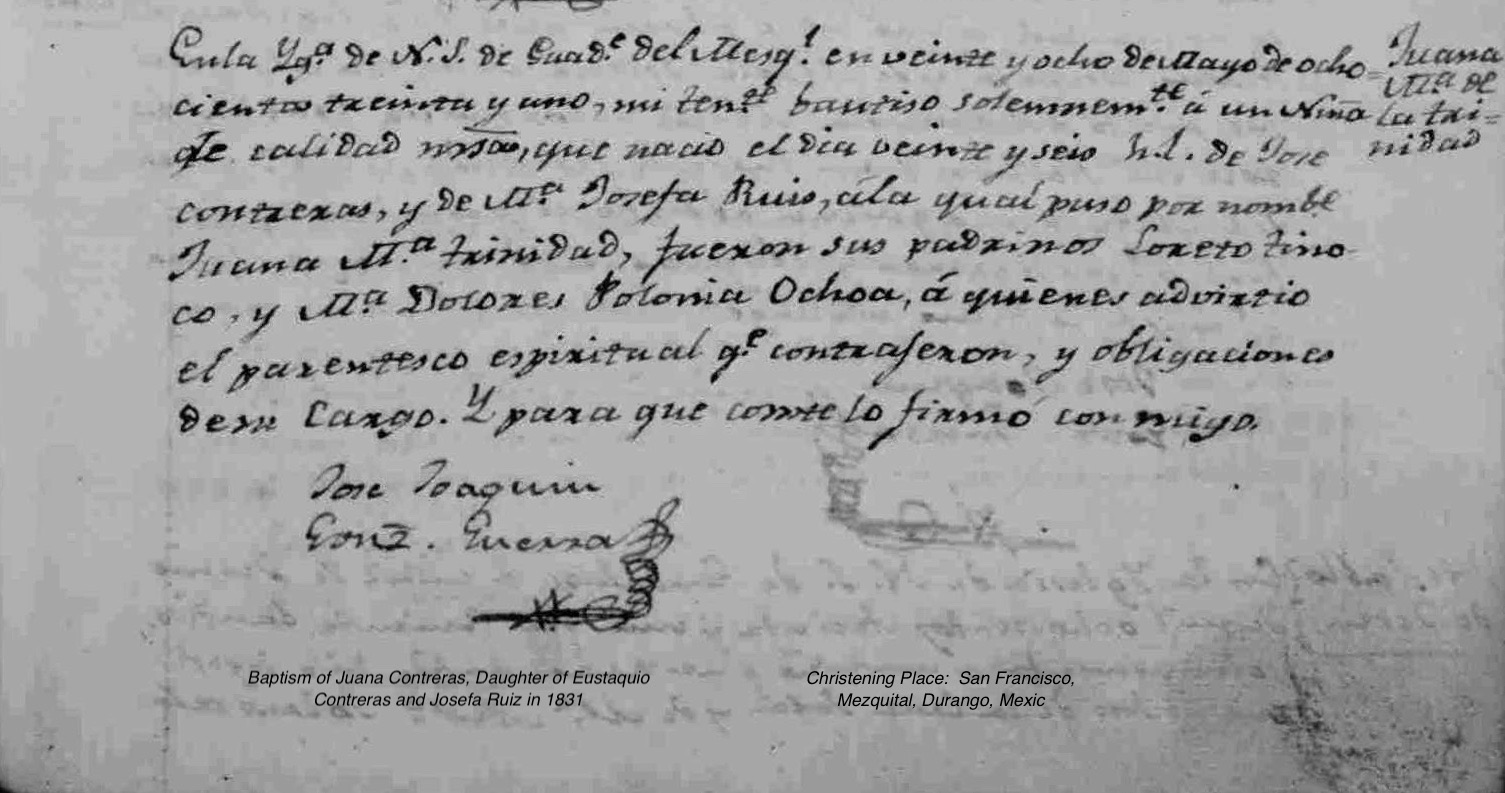 En la Yg.ª de N. S. de Guad.e del Mesq.l en veinte y ocho de Mayo de ocho=
cientos treinta y uno, mi ten.te bautiso solemnem.te á un Niña
de calidad, que nacio el dia veinte y seis h. l. de Jose
contreras, y de M.ª Josefa Ruis, ála qual puso por nombe
Juana M.ª trinidad, fueron sus padrinos Loreto tino
co, y M.ª Dolores Polonia Ochoa, á quienes advirtio
el parentesco espiritual q.e contrajeron, y obligaciones
de su Cargo. Y para que conste lo firmó conmigo.
Juana
M.ª de
la tri=
nidad
Jose Joaquin
Gonz. Guerra
Baptism of Juana Contreras, Daughter of Eustaquio
Contreras and Josefa Ruiz in 1831
Christening Place: San Francisco,
Mezquital, Durango, Mexic